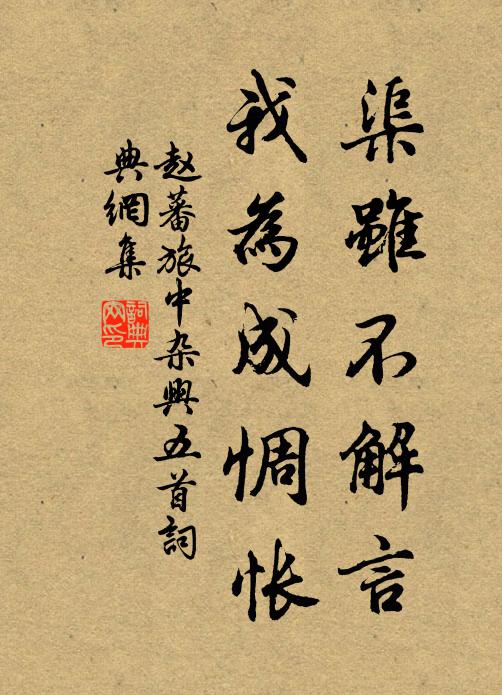 渠雖不解言
我為成惆怅
赵蕃旅中杂興五首詞
典網集
詞典
网印